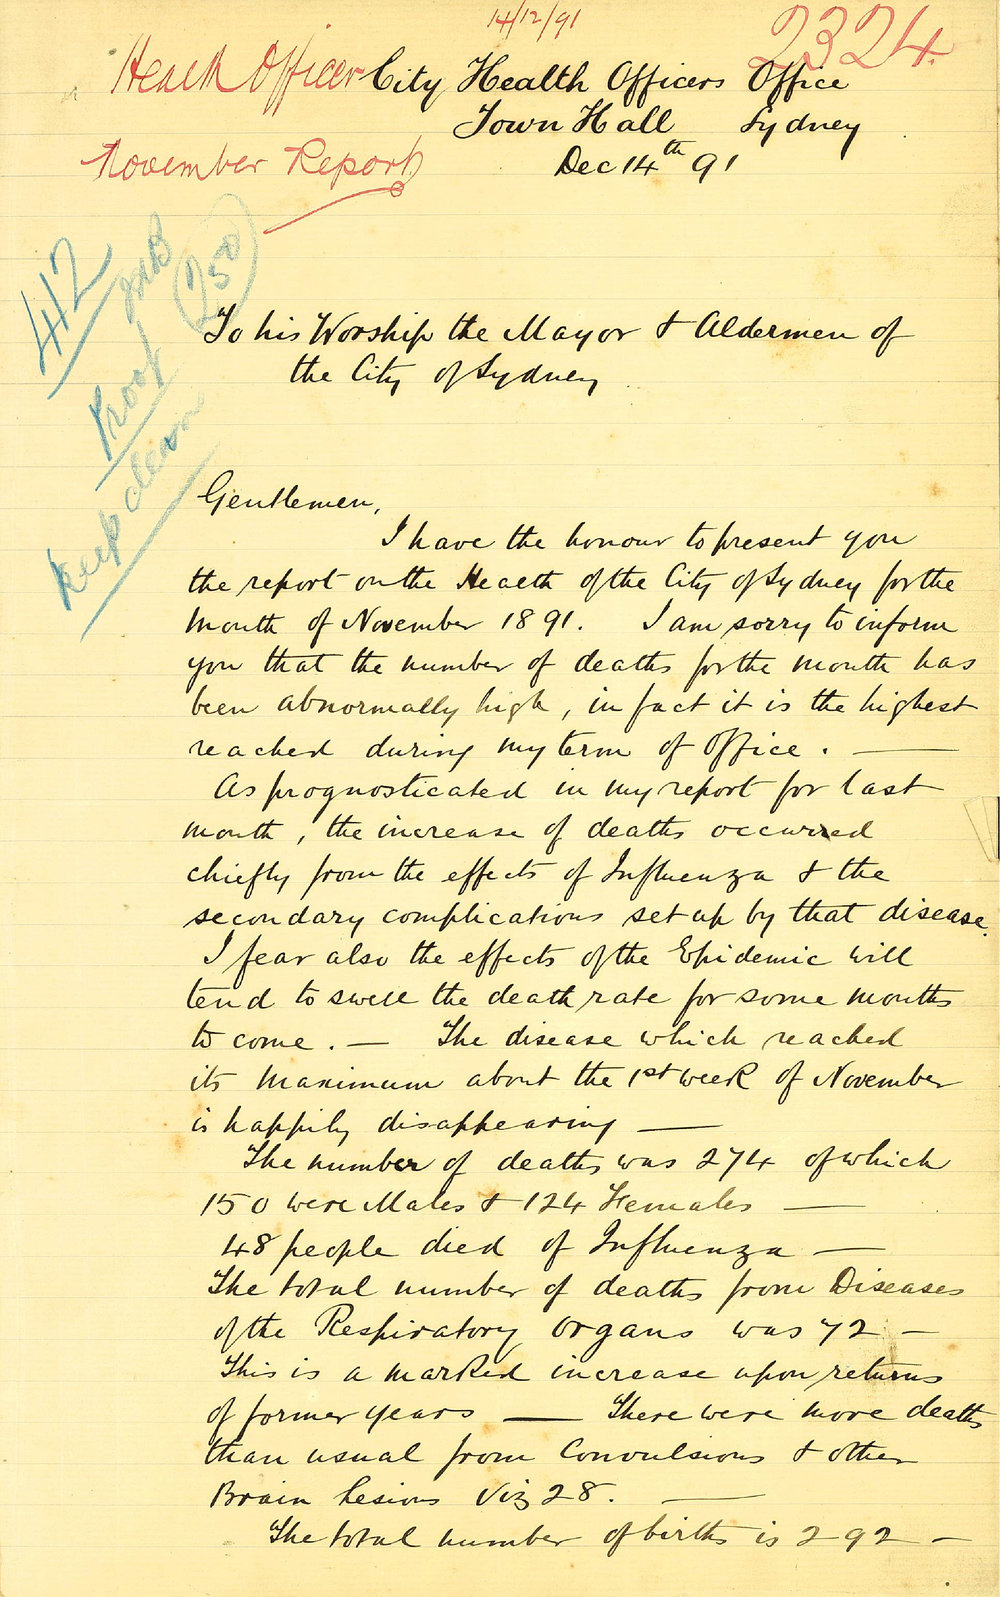 14/12/91
2324
Health Officer
City Health Officers Office
Town Hall Sydney
November Report
Dec 14th 91
412
250
Proof
keep clean
To his Worship the Mayor & Aldermen of
the City of Sydney
Gentlemen,
I have the honour to present you
the report on the Health of the City of Sydney for the
Month of November 1891. I am sorry to inform
you that the number of deaths for the month has
been abnormally high, in fact it is the highest
reached during my term of office. —
As prognosticated in my report for last
month, the increase of deaths occurred
chiefly from the effects of Influenza & the
secondary complications set up by that disease.
I fear also the effects of the Epidemic will
tend to swell the death rate for some months
to come. — The disease which reached
its maximum about the 1st week of November
is happily disappearing —
The number of deaths was 274 of which
150 were Males & 124 Females —
48 people died of Influenza —
The total number of deaths from Diseases
of the Respiratory Organs was 72 —
This is a marked increase upon returns
of former years — There were more deaths
than usual from Convulsions & other
Brain Lesions Viz 28. —
The total number of births is 292 —